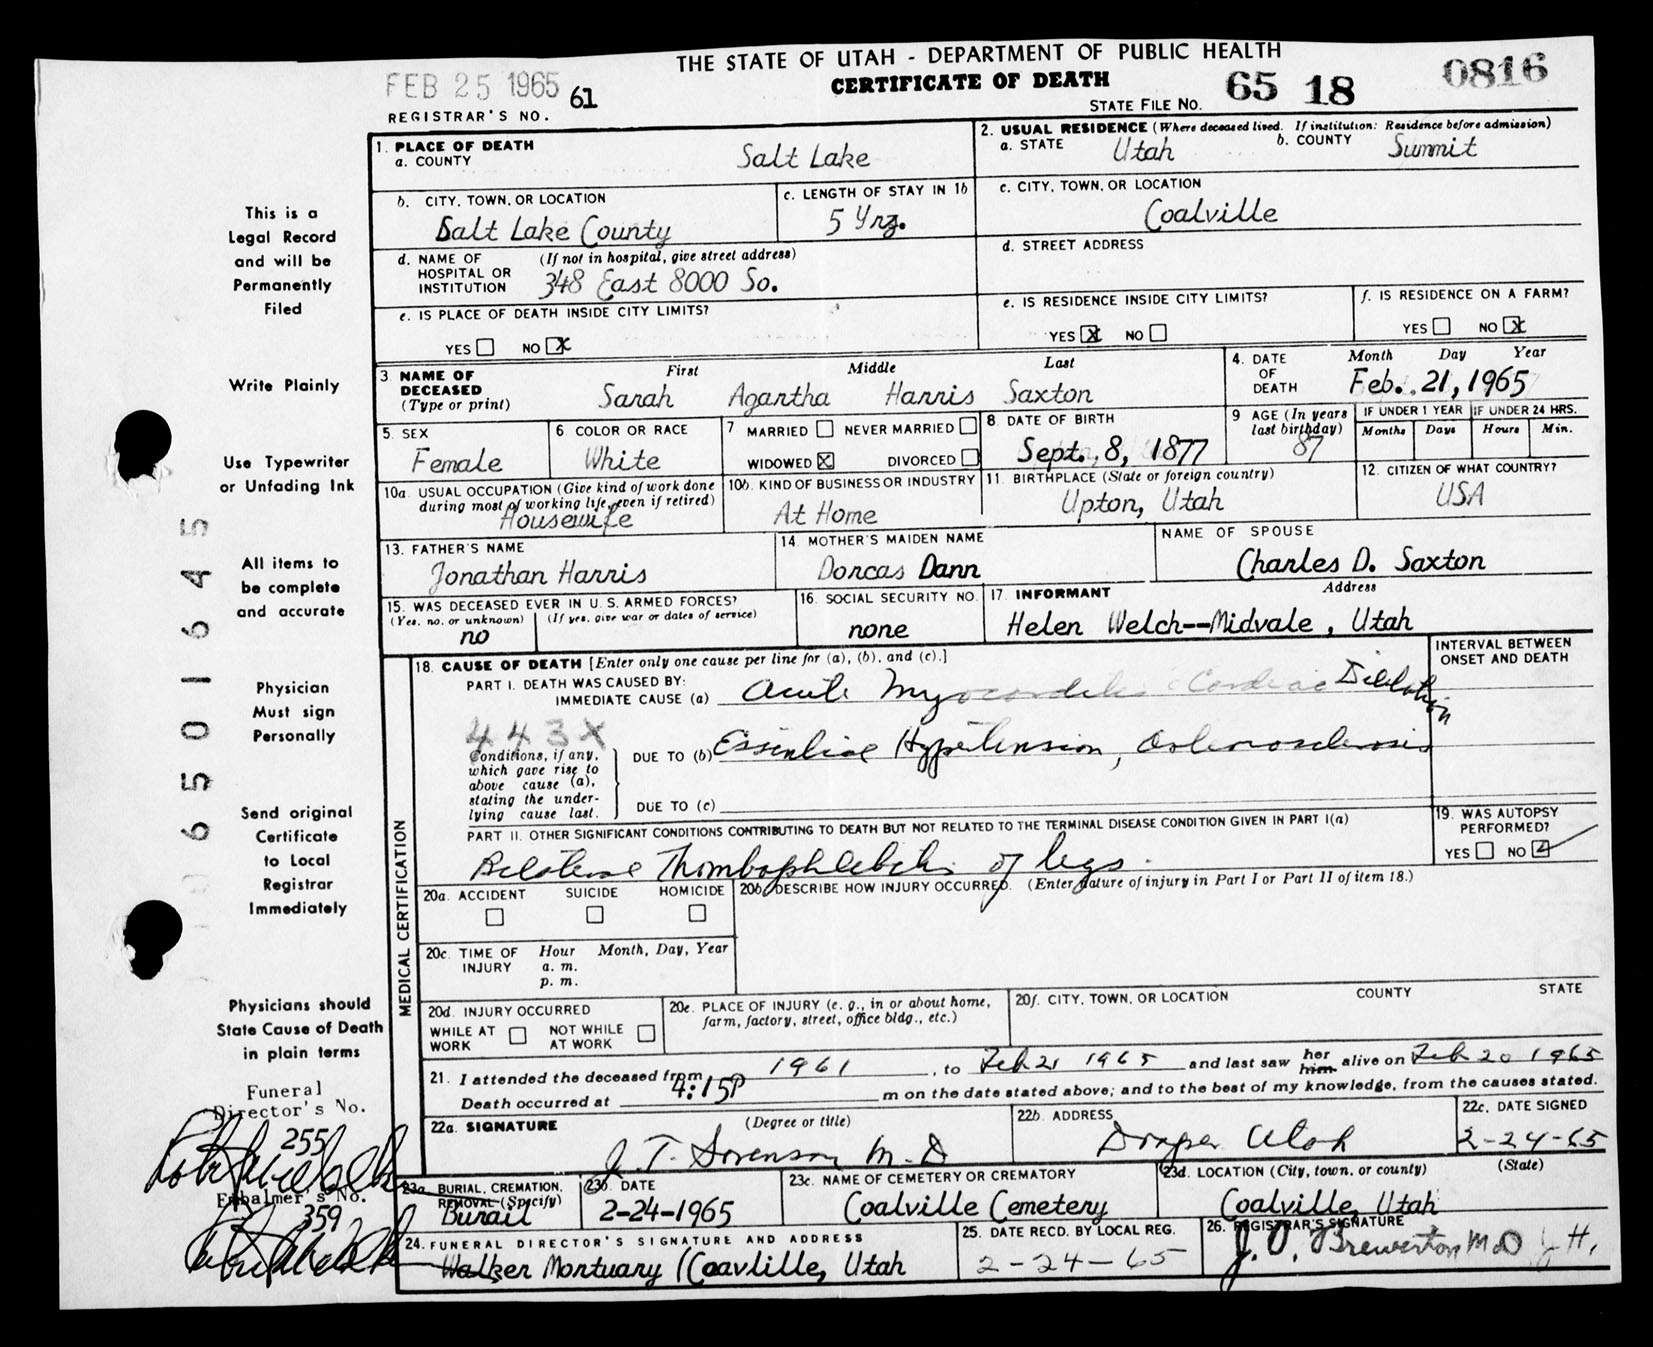 THE STATE OF UTAH - DEPARTMENT OF PUBLIC HEALTH
CERTIFICATE OF DEATH
FEB 25 1965 61
REGISTRAR'S NO.
STATE FILE NO. 65 18 0816
1. PLACE OF DEATH
a. COUNTY Salt Lake
2. USUAL RESIDENCE (Where deceased lived. If institution: Residence before admission)
a. STATE Utah b. COUNTY Summit
b. CITY, TOWN, OR LOCATION
Salt Lake County
c. LENGTH OF STAY IN 1b
5 Yrs.
c. CITY, TOWN, OR LOCATION
Coalville
d. NAME OF HOSPITAL OR INSTITUTION (If not in hospital, give street address)
348 East 8000 So.
d. STREET ADDRESS
e. IS PLACE OF DEATH INSIDE CITY LIMITS?
YES NO X
e. IS RESIDENCE INSIDE CITY LIMITS?
YES X NO
f. IS RESIDENCE ON A FARM?
YES NO X
3. NAME OF DECEASED (Type or print)
First Middle Last
Sarah Agantha Harris Saxton
4. DATE OF DEATH
Month Day Year
Feb. 21, 1965
5. SEX
Female
6. COLOR OR RACE
White
7 MARRIED NEVER MARRIED
WIDOWED X DIVORCED
8. DATE OF BIRTH
Sept. 8, 1877
9 AGE (In years last birthday)
87
IF UNDER 1 YEAR IF UNDER 24 HRS.
Months Days Hours Min.
10a. USUAL OCCUPATION (Give kind of work done during most of working life, even if retired)
Housewife
10b. KIND OF BUSINESS OR INDUSTRY
At Home
11. BIRTHPLACE (State or foreign country)
Upton, Utah
12. CITIZEN OF WHAT COUNTRY?
USA
13. FATHER'S NAME
Jonathan Harris
14. MOTHER'S MAIDEN NAME
Dorcas Dann
NAME OF SPOUSE
Charles D. Saxton
15. WAS DECEASED EVER IN U.S. ARMED FORCES?
(Yes, no, or unknown) (If yes, give war or dates of service)
no
16. SOCIAL SECURITY NO.
none
17. INFORMANT Address
Helen Welch--Midvale, Utah
MEDICAL CERTIFICATION
18. CAUSE OF DEATH [Enter only one cause per line for (a), (b), and (c).]
INTERVAL BETWEEN ONSET AND DEATH
PART I. DEATH WAS CAUSED BY:
IMMEDIATE CAUSE (a) Acute Myocarditis Cardiac Dilation
443X
Conditions, if any, which gave rise to above cause (a), stating the under-lying cause last.
DUE TO (b) Essential Hypertension, Arteriosclerosis
DUE TO (c)
PART II. OTHER SIGNIFICANT CONDITIONS CONTRIBUTING TO DEATH BUT NOT RELATED TO THE TERMINAL DISEASE CONDITION GIVEN IN PART I(a)
Bilateral Thrombophlebitis of legs.
19. WAS AUTOPSY PERFORMED?
YES NO
20a. ACCIDENT SUICIDE HOMICIDE
20b. DESCRIBE HOW INJURY OCCURRED. (Enter nature of injury in Part I or Part II of item 18.)
20c. TIME OF INJURY Hour Month, Day, Year
a. m.
p. m.
20d. INJURY OCCURRED
WHILE AT WORK NOT WHILE AT WORK
20e. PLACE OF INJURY (e. g., in or about home, farm, factory, street, office bldg., etc.)
20f. CITY, TOWN, OR LOCATION COUNTY STATE
21. I attended the deceased from 1961, to Feb 21 1965 and last saw her him alive on Feb 20 1965
Death occurred at 4:15P m on the date stated above; and to the best of my knowledge, from the causes stated.
22a. SIGNATURE (Degree or title)
J. T. Sorenson M.D
22b. ADDRESS
Draper Utah
22c. DATE SIGNED
2-24-65
23a. BURIAL, CREMATION, REMOVAL (Specify)
Burail
23b. DATE
2-24-1965
23c. NAME OF CEMETERY OR CREMATORY
Coalville Cemetery
23d. LOCATION (City, town, or county) (State)
Coalville, Utah
24. FUNERAL DIRECTOR'S SIGNATURE AND ADDRESS
Walker Mortuary (Coavlille, Utah
25. DATE RECD. BY LOCAL REG.
2-24-65
26. REGISTRAR'S SIGNATURE
J. O. Brewerton M.D
This is a
Legal Record
and will be
Permanently
Filed
Write Plainly
Use Typewriter
or Unfading Ink
All items to
be complete
and accurate
Physician
Must sign
Personally
Send original
Certificate
to Local
Registrar
Immediately
Physicians should
State Cause of Death
in plain terms
Funeral
Director's No.
255
Embalmer's No.
359
6501645